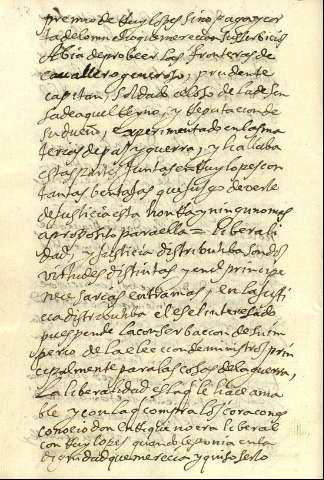 premio de Ruylopes sino pagar por
abia de probeer las fronteras de
cavallero generoso, prudente
capitan, soldado celoso de la defen
sa de aquel Reyno, y reputacion de
su dueño, experimentado en las ma
terias de pas y guerra, y hallaba
estas partes juntas en Ruylopes con
tantas bentajas que juzgo deverle
de justicia esta honrra y ninguno mas
a proposito para ella = liberali
dad, y justicia distributiba son dos
virtudes distintas y en el principe
necesarias entramas, en la justi
cia distributiba el es el interesado
pues pende la conserbacion de su im
perio de la eleccion de ministros prin
cipalmente para las cosas de la guerra,
La liberalidad es la q le hace ama
ble y con la q compra los coracones
conocio don Enrique no era liberal
con Ruylopes quando le ponia en la
dignidad que merecia y quiso serlo